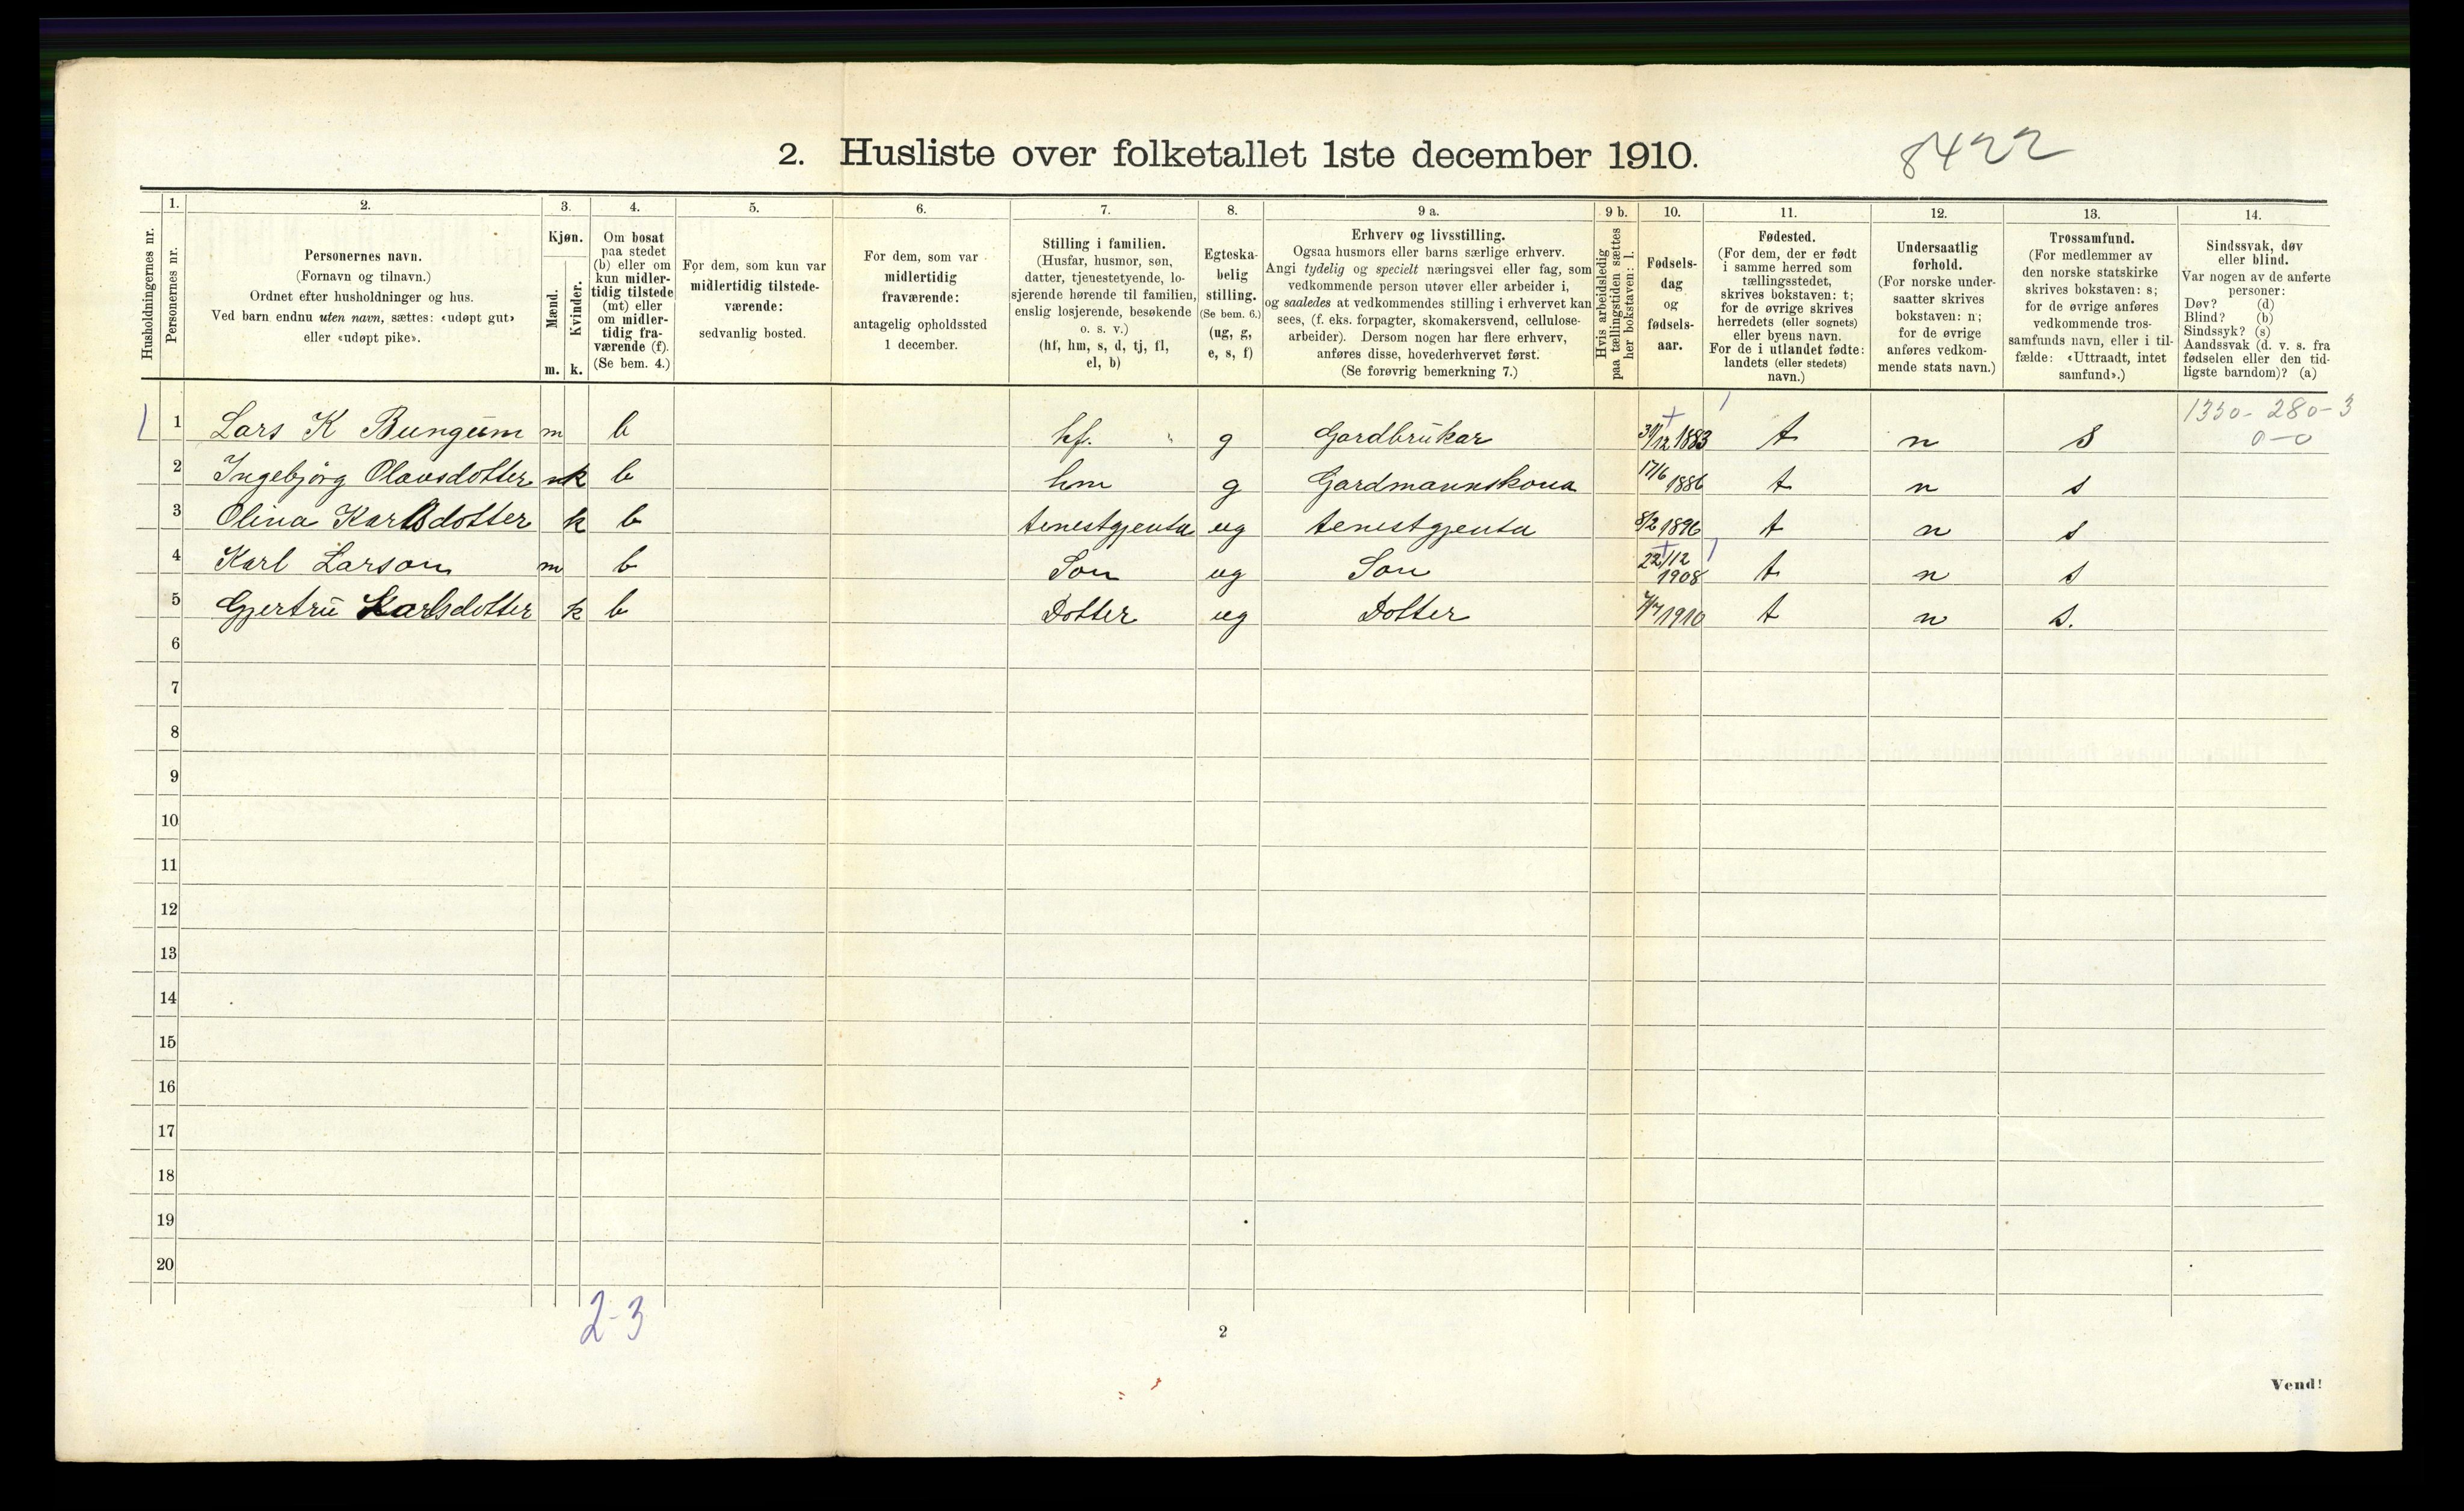 2. Husliste over folketallet 1ste december 1910.
8422
Husholdningernes nr.
1.
Personernes nr.
2.
Personernes navn.
(Fornavn og tilnavn.)
Ordnet efter husholdninger og hus.
Ved barn endnu uten navn, sættes: «udøpt gut»
eller «udøpt pike».
3.
Kjøn.
Mænd.
Kvinder.
m. k.
4.
Om bosat
paa stedet
(b) eller om
kun midler-
tidig tilstede
(mt) eller
om midler-
tidig fra-
værende (f).
(Se bem. 4.)
5.
For dem, som kun var
midlertidig tilstede-
værende:
sedvanlig bosted.
6.
For dem, som var
midlertidig
fraværende:
antagelig opholdssted
1 december.
7.
Stilling i familien.
(Husfar, husmor, søn,
datter, tjenestetyende, lo-
sjerende hørende til familien,
enslig losjerende, besøkende
o. s. v.)
(hf, hm, s, d, tj, fl,
el, b)
8.
Egteska-
belig
stilling.
(Se bem. 6.)
(ug, g,
e, s, f)
9 a.
Erhverv og livsstilling.
Ogsaa husmors eller barns særlige erhverv.
Angi tydelig og specielt næringsvei eller fag, som
vedkommende person utøver eller arbeider i,
og saaledes at vedkommendes stilling i erhvervet kan
sees, (f. eks. forpagter, skomakersvend, cellulose-
arbeider). Dersom nogen har flere erhverv,
anføres disse, hovederhvervet først.
(Se forøvrig bemerkning 7.)
9 b.
Hvis arbeidsledig
paa tællingstiden sættes
her bokstaven: l.
10.
Fødsels-
dag
og
fødsels-
aar.
11.
Fødested.
(For dem, der er født
i samme herred som
tællingsstedet,
skrives bokstaven: t;
for de øvrige skrives
herredets (eller sognets)
eller byens navn.
For de i utlandet fødte:
landets (eller stedets)
navn.)
12.
Undersaatlig
forhold.
(For norske under-
saatter skrives
bokstaven: n;
for de øvrige
anføres vedkom-
mende stats navn.)
13.
Trossamfund.
(For medlemmer av
den norske statskirke
skrives bokstaven: s;
for de øvrige anføres
vedkommende tros-
samfunds navn, eller i til-
fælde: «Uttraadt, intet
samfund».)
14.
Sindssvak, døv
eller blind.
Var nogen av de anførte
personer:
Døv? (d)
Blind? (b)
Sindssyk? (s)
Aandssvak (d. v. s. fra
fødselen eller den tid-
ligste barndom)? (a)
1 1 Lars K Bungum m b hf. g Gardbrukar 12 1883 t n s 1330-280-3
0-0
2 Ingebjørg Olavsdotter k b hm g Gardmannskona 17/6 1886 t n s
3 Olina Karlsdotter k b tenestgjenta ug tenestgjenta 8/2 1896 t n s
4 Karl Larson m b Son ug Son 22/12 1908 t n s
5 Gjertru Larsdotter k b Dotter ug Dotter 1910 t n s.
6
7
8
9
10
11
12
13
14
15
16
17
18
19
20
2-3
2
Vend!